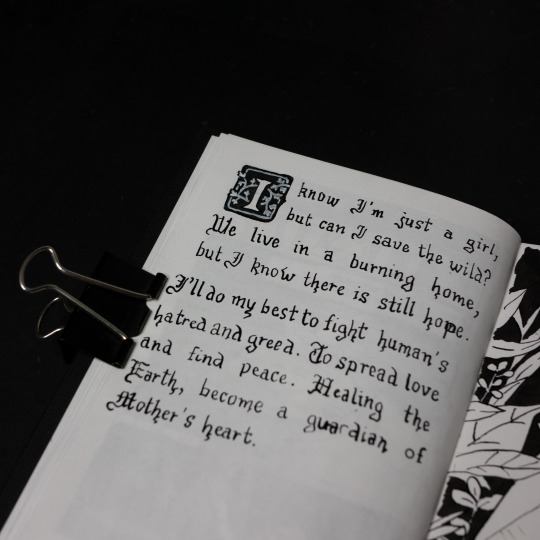 I know I'm just a girl,
but can I save the wild?
We live in a burning home,
but I know there is still hope.
I'll do my best to fight human's
hatred and greed. To spread love
and find peace. Healing the
Earth, become a guardian of
Mother's heart.